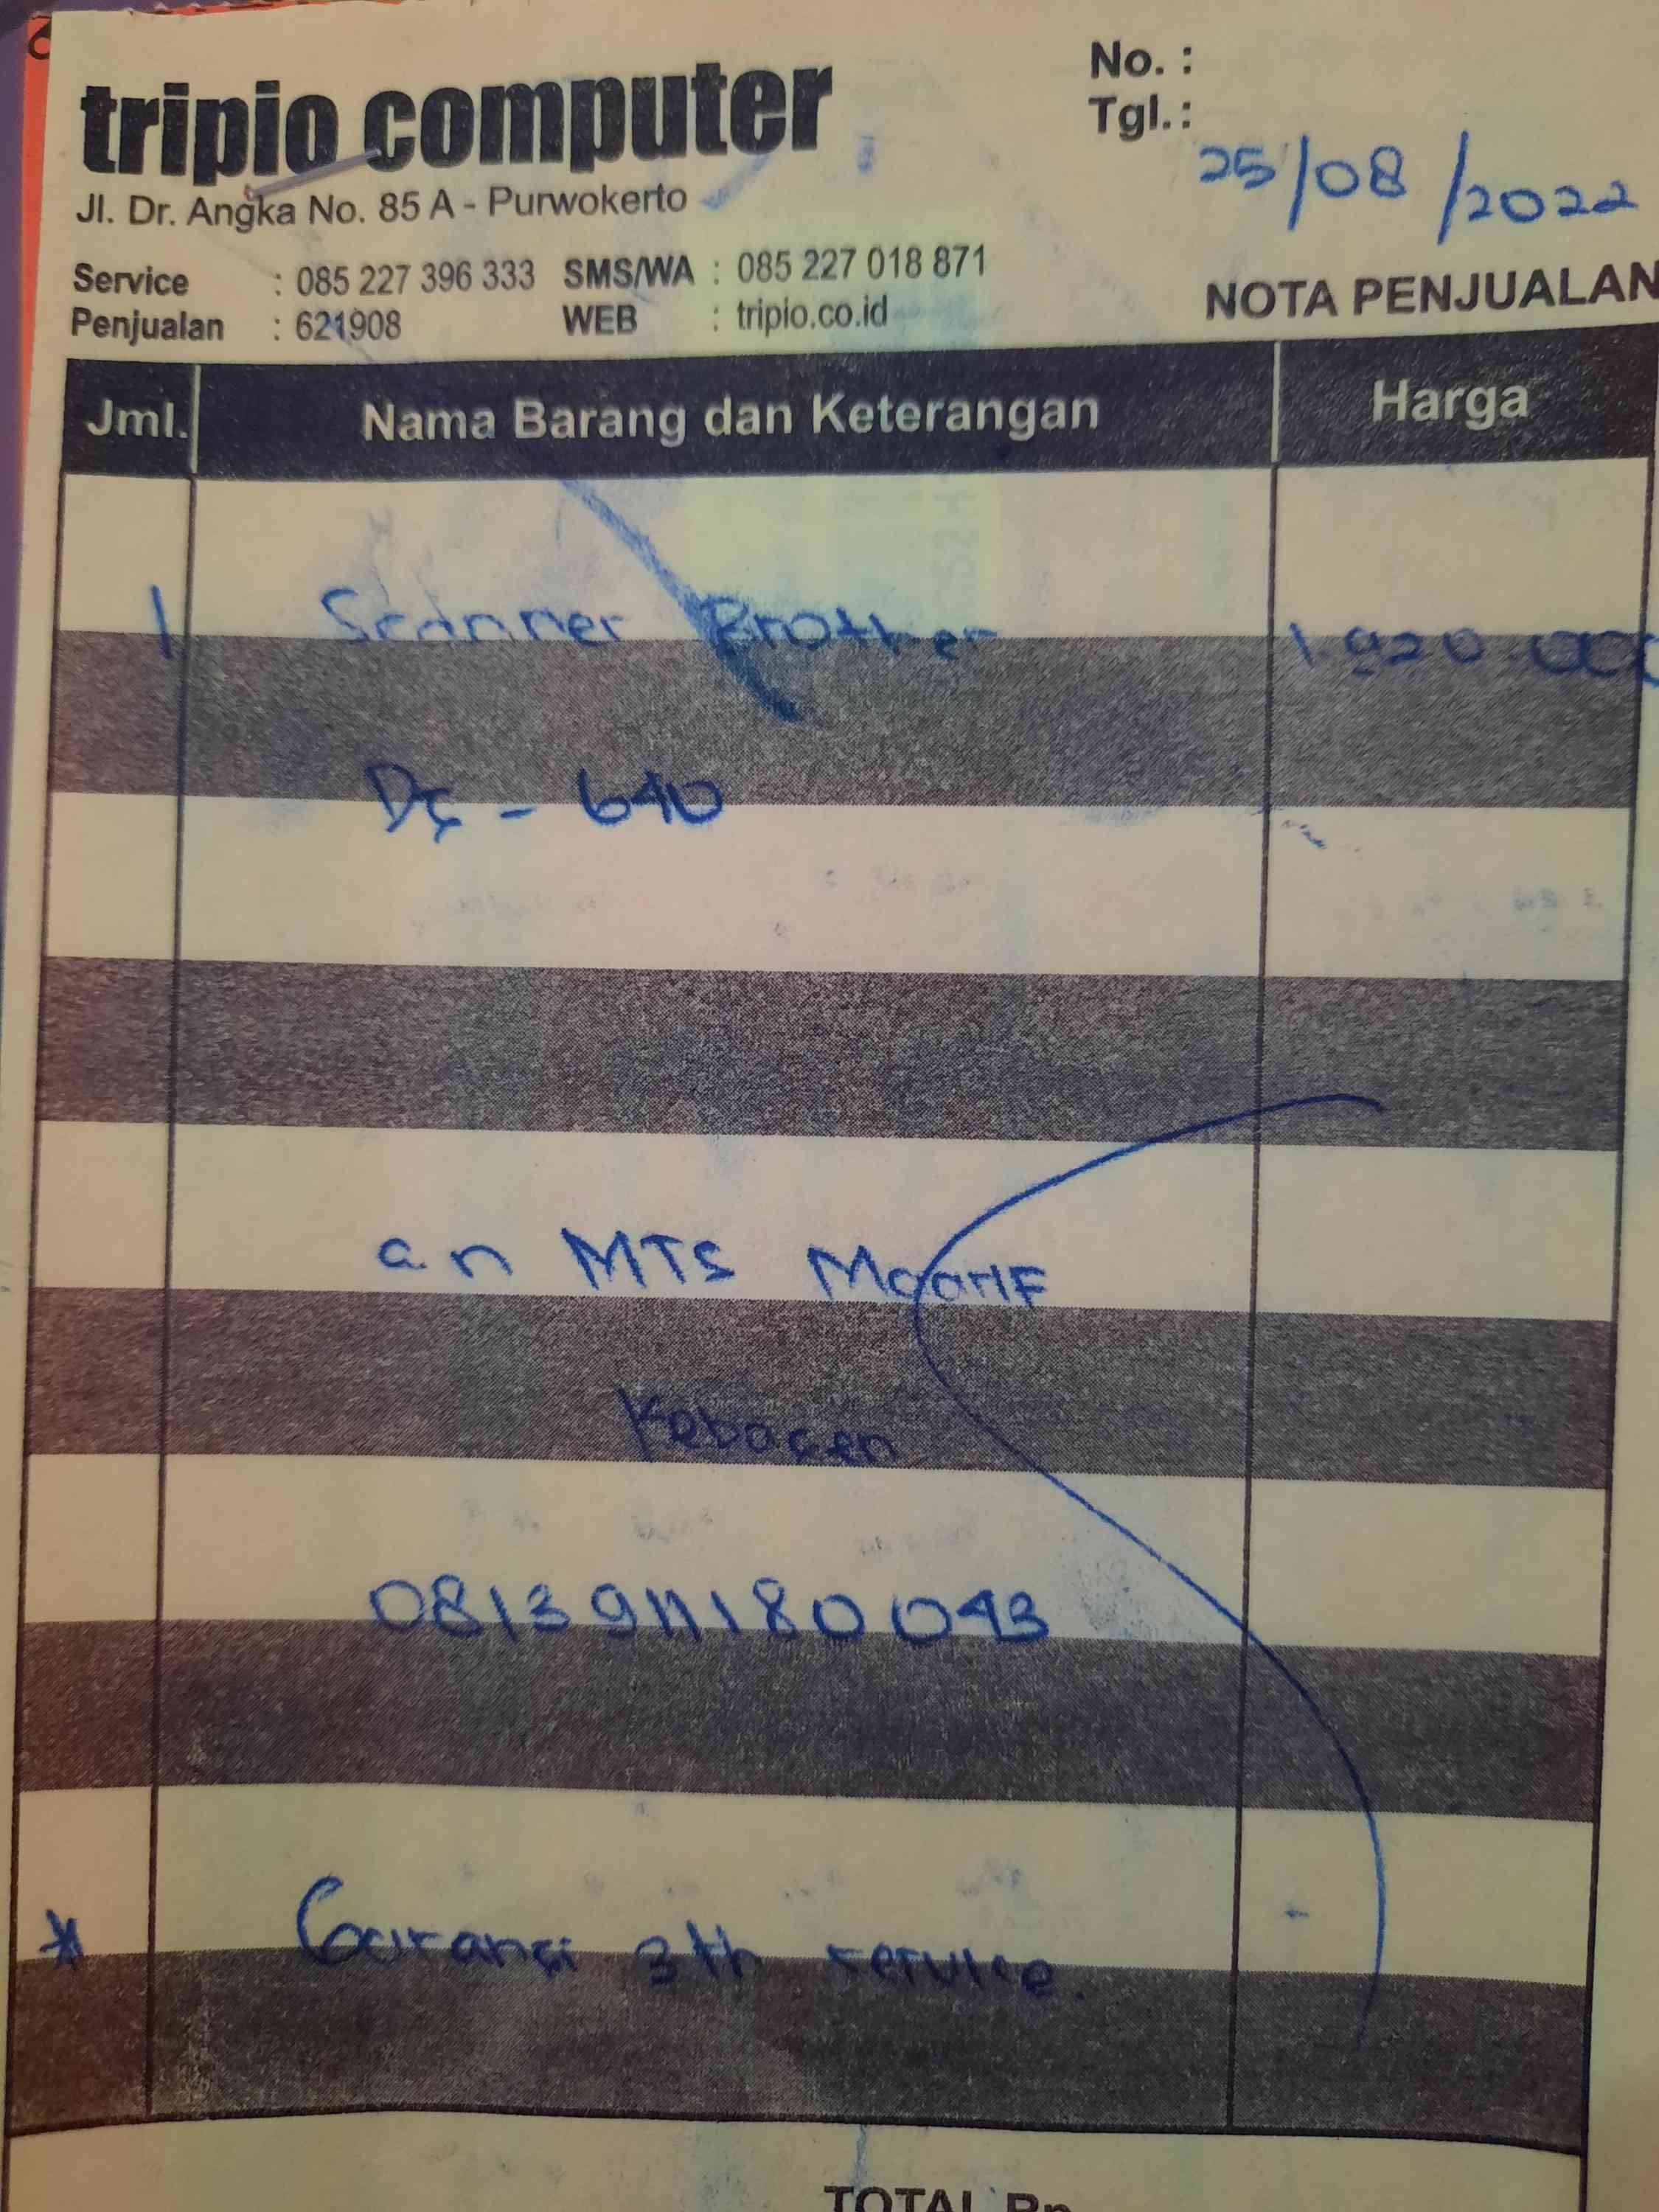 tripio computer
Jl. Dr. Angka No. 85 A - Purwokerto
No. :
Tgl. : 25/08/2022
Service : 085 227 396 333 SMS/WA : 085 227 018 871
Penjualan : 621908 WEB : tripio.co.id
NOTA PENJUALAN
Jml. Nama Barang dan Keterangan Harga
1 Scanner Brother 1.920.000
DS - 640
a.n MTS Maarif
Kebasen
* Garansi 3th service
TOTAL Rp